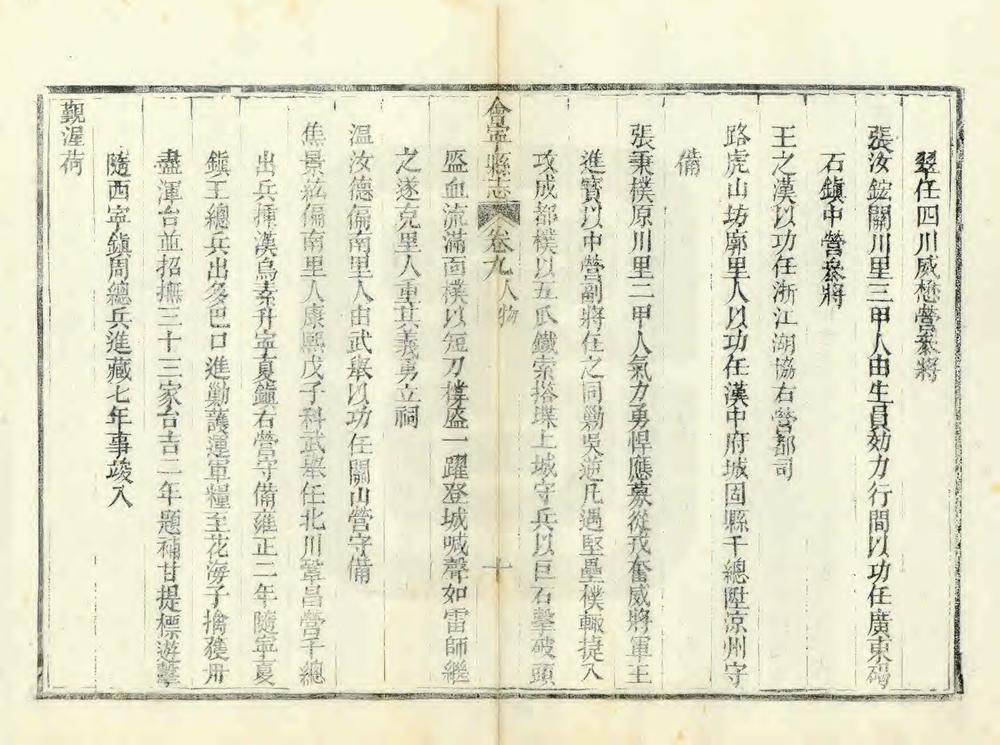 翠任四川威懋營叅將
張汝鋐關川里三甲人由生員効力行間以功任廣東碣
石鎭中營叅將
王之漢以功任浙江湖協右營都司
路虎山坊廓里人以功任漢中府城固縣千總陞涼州守
備
張秉樸原川里二甲人氣力勇悍應募從戎奮威將軍王
進寶以中營副將任之同勦吳逆凡遇堅壘樸輒捷入
攻成都樸以五爪鐵索搭堞上城守兵以巨石擊破頭
會寧縣志 卷九 人物 十
盔血流滿面樸以短刀撐盛一躍登城喊聲如雷師繼
之遂克里人重其義勇立祠
温汝德偏南里人由武舉以功任關山營守備
焦景竑偏南里人康熙戊子科武舉任北川鞏昌營千總
出兵揷漢烏素升寧夏鎭右營守備雍正二年隨寧夏
鎭王總兵出多巴口進勦護運軍糧至花海子擒獲丹
盡渾台並招撫三十三家台吉二年題補甘提標遊擊
隨西寧鎭周總兵進藏七年事竣入
覲渥荷